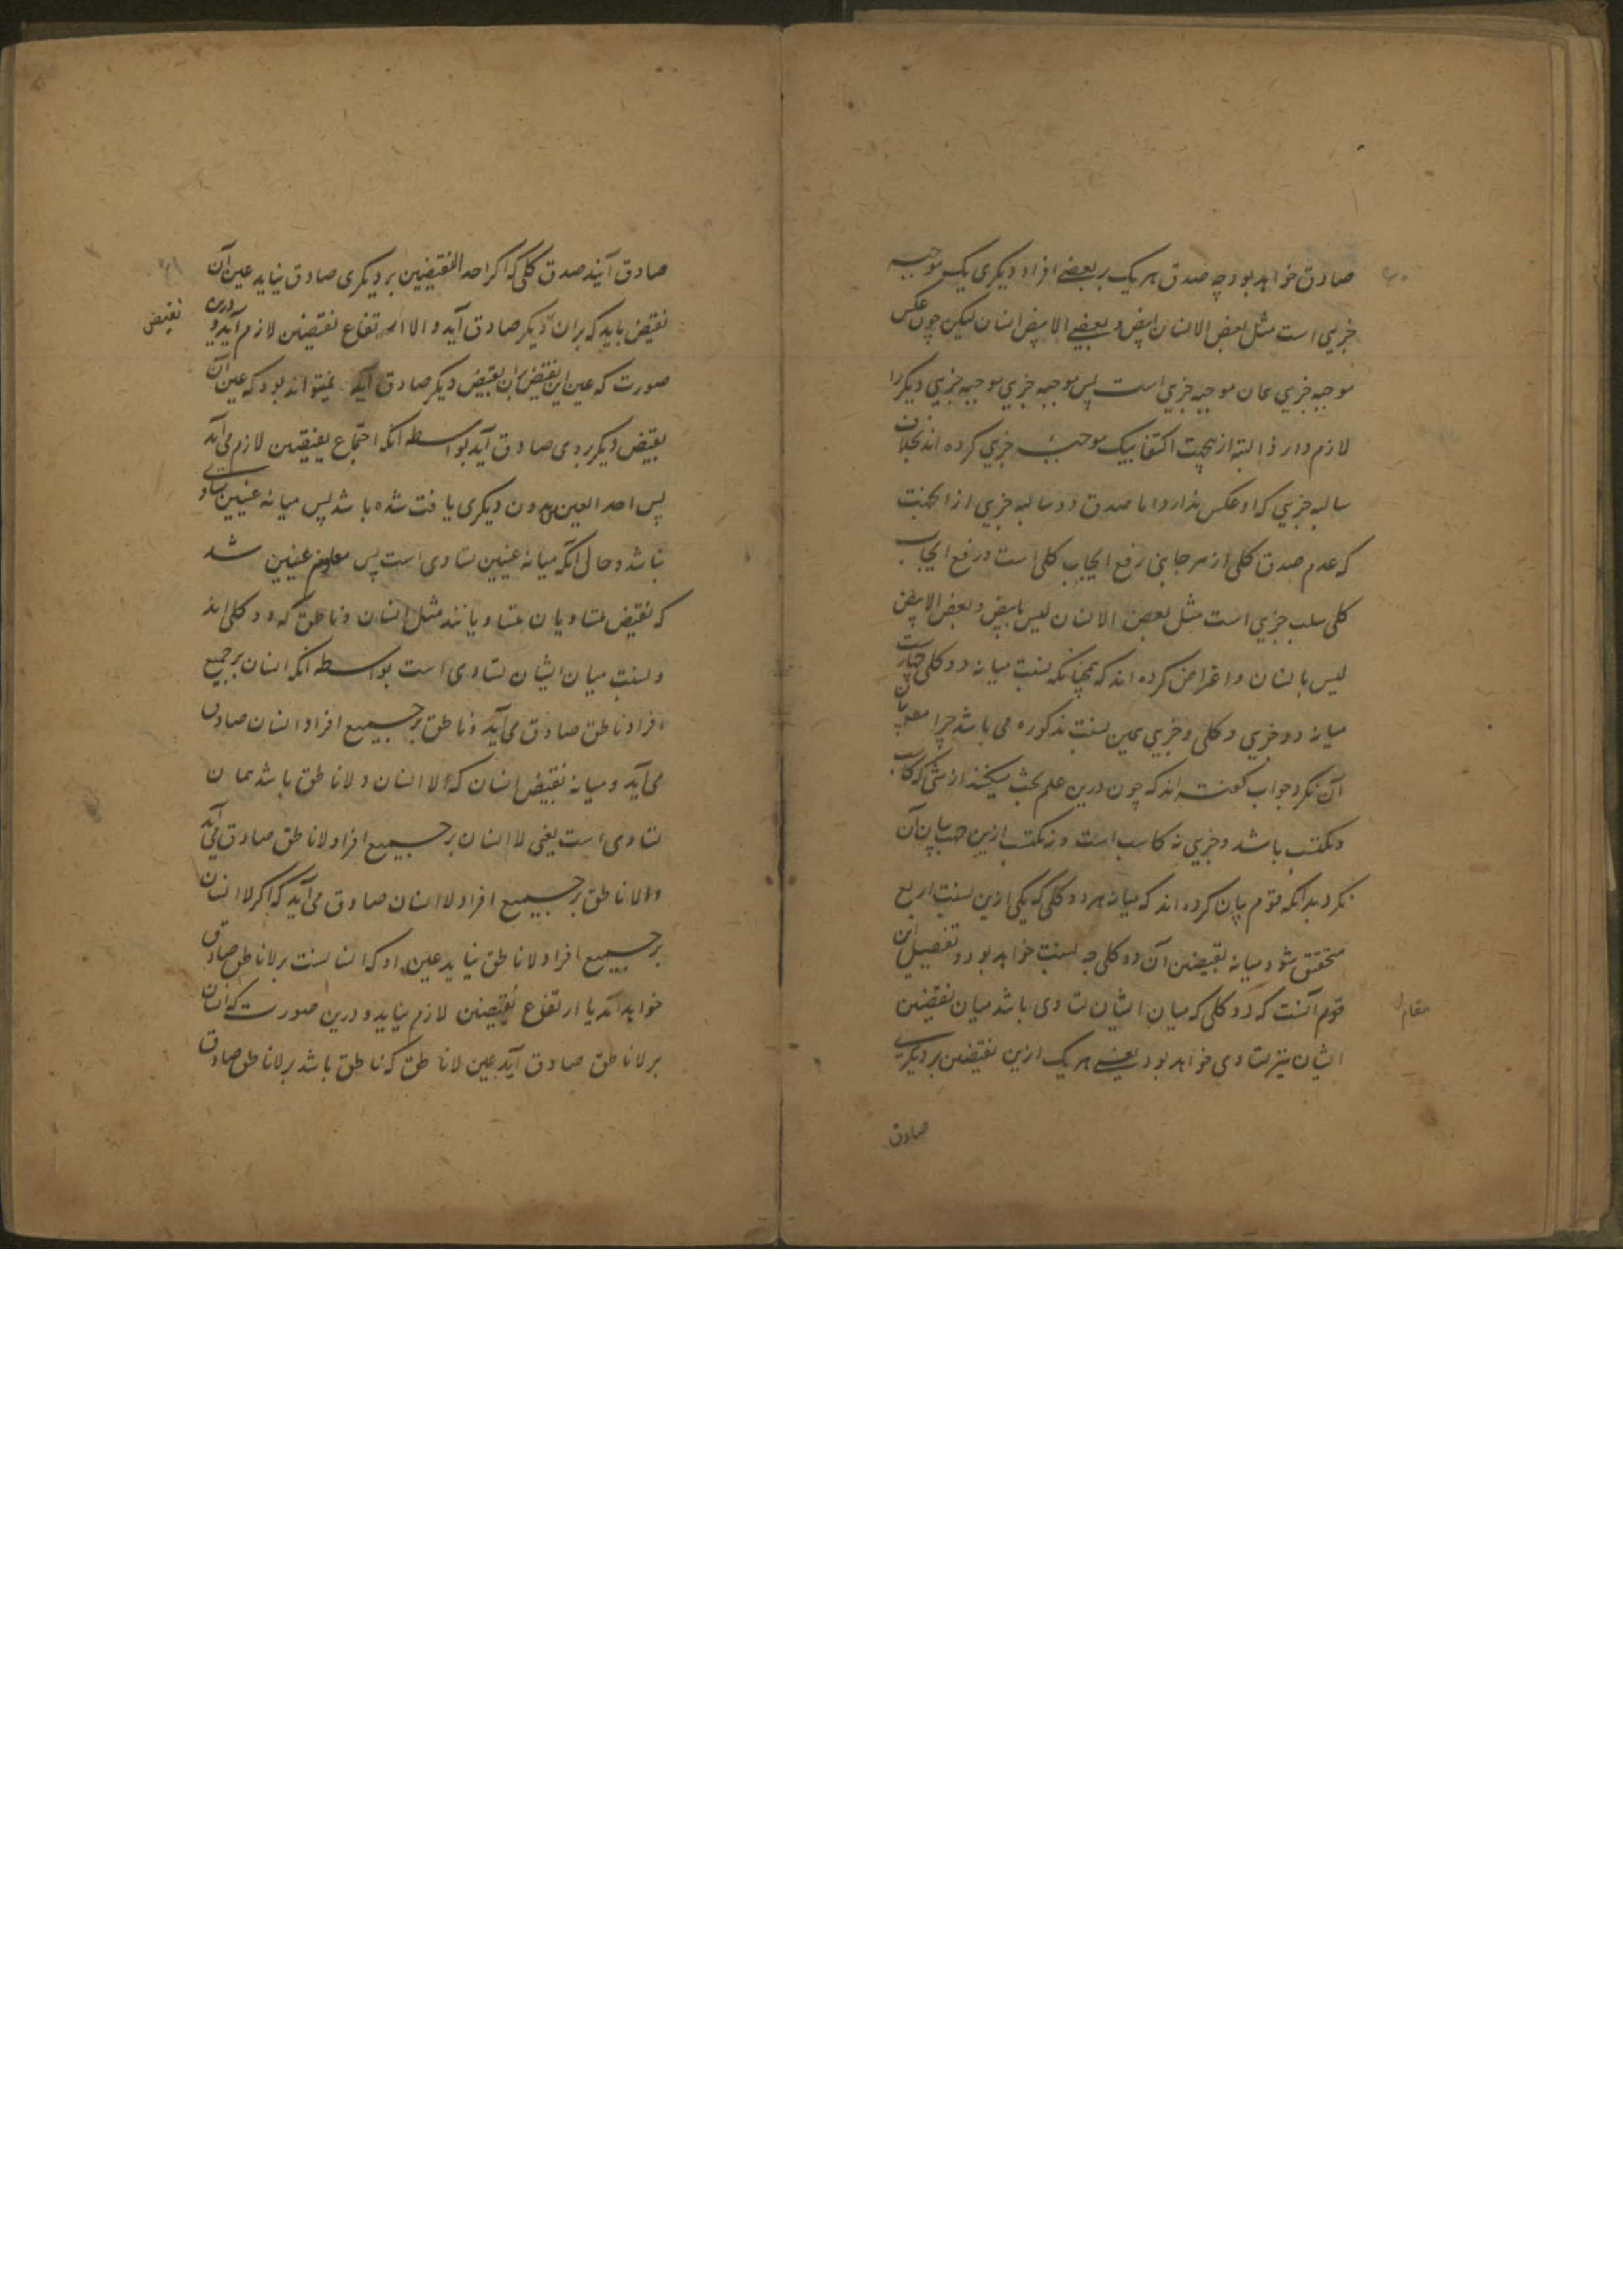 صادق خواهد بود چه صدق هر یک بر بعضے افراد دیکری یک موجبه
جزیي است مثل بعض الانسان ابیض و بعضے الابیض انسان لیکن چون عکس
موجبه جزیي همان موجبه جزیي است پس موجبه جزیي موجبه جزیي دیکر را
لازم دارد البته ازینجهت اکتفا بیک موجبه جزیي کرده اند بخلاف
سالبه جزیي که او عکس ندارد اما صدق دو سالبه جزیي از انجهت
که عدم صدق کلی از هر جانبی رفع ایجاب کلی است و رفع ایجاب
کلی سلب جزیي است مثل بعض الانسان لیس بابیض و بعض الابیض
لیس بانسان و اعتراض کرده اند که همچنانکه نسبت میانه دو کلی چهارست
میانه دو جزیي و کلی و جزیي همین نسبت مذکوره می باشد چرا مص بیان
آن نکرد جواب کفته اند که چون درین علم بحث میکنند از شی که کاسب
و مکتسب باشد و جزیي نه کاسب است و نه مکتسب ازین جهت بیان آن
نکرد بدانکه قوم بیان کرده اند که میانه هر دو کلی که یکی ازین نسبت اربع
متحقق شود میانه نقیضین آن دو کلی چه نسبت خواهد بود و تفصیل این
مقام
قوم آنست که دو کلی که میان ایشان تساوی باشد میان نقیضین
ایشان نیز تساوی خواهد بود یعنے هر یک ازین نقیضین بر دیکری
صادق
صادق آیند صدق کلی که اکر احد النقیضین بر دیکری صادق نیاید عین آن
نقیض باید که بران دیکر صادق آید و الا ارتفاع نقیضین لازم آید و درین
نقیض
صورت که عین این نقیض بران نقیض دیکر صادق آید نمیتواند بود که عین آن
نقیض دیکر بر وی صادق آید بواسطه انکه اجتماع نقیضین لازم می آید
پس احد العینین بدون دیکری یافت شده باشد پس میانه عینین تساوی
نباشد و حال آنکه میانه عینین تساوی است پس معلوم شد
که نقیض متساویان متساویانند مثل انسان و ناطق که دو کلی اند
و نسبت میان ایشان تساوی است بواسطه انکه انسان بر جمیع
افراد ناطق صادق می آید و ناطق بر جمیع افراد انسان صادق
می آید و میانه نقیض انسان که لا انسان و لا ناطق باشد همان
تساوی است یعنی لا انسان بر جمیع افراد لا ناطق صادق می آید
و لا ناطق بر جمیع افراد لا انسان صادق می آید که اکر لا انسان
بر جمیع افراد لا ناطق نیاید عین او که انسانست بر لا ناطق صادق
خواهد آمد یا ارتفاع نقیضین لازم نیاید و درین صورت که انسان
بر لا ناطق صادق آید عین لا ناطق که ناطق باشد بر لا ناطق صادق